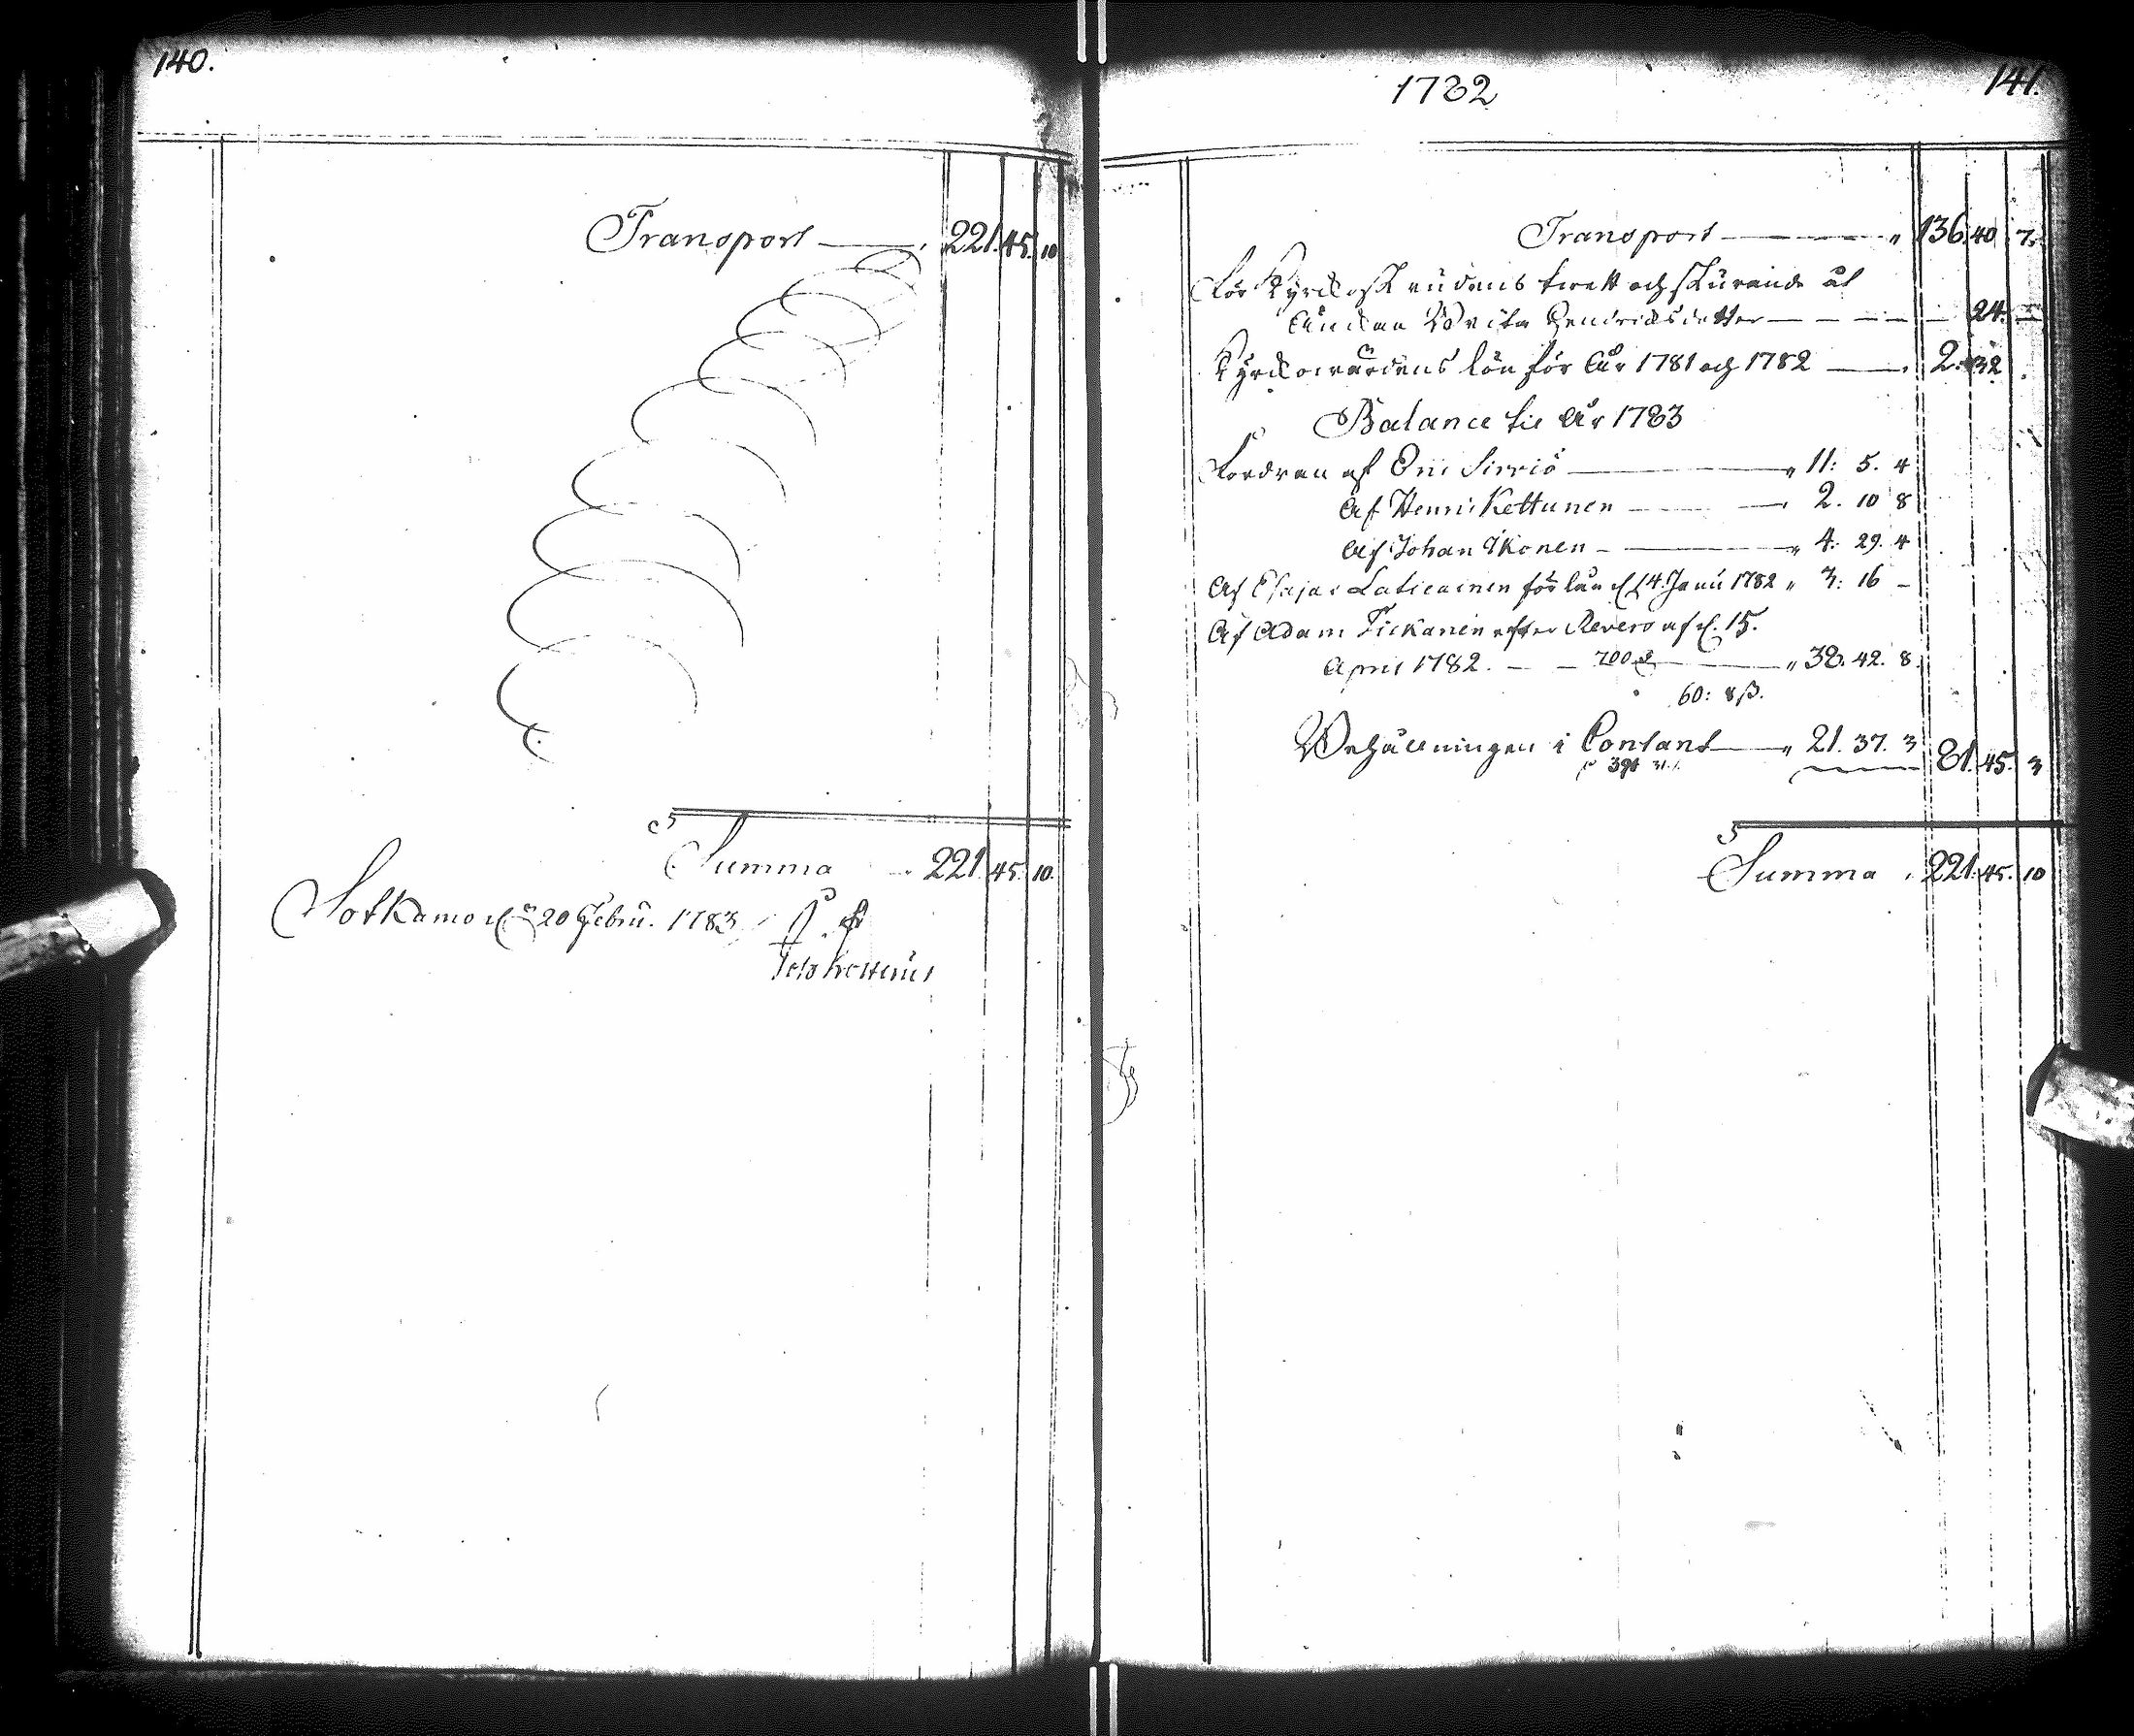 140.
Transport 221. 45. 10
Summa 221. 45. 10.
Sotkamo d. 20 Febru. 1783
141.
1782
Transport 136. 40 7.
För Kyrckoskrudens twett och skurande åt
Änckan Brita Hendricsdotter 24. —
Kyrckowärdens lön för År 1781 och 1782 2. 32
Balance til År 1783
Fordran af Oni Sirviö 11: 5. 4
Af Henric Kettunen 2. 10 8
Af Johan Ikonen 4. 29. 4
Af Esajas Laticainen för lån d. 14. Janu 1782 3: 16 —
Af Adam Tickanen efter Revers af d. 15.
April 1782. 700 38. 42. 8.
60: 8 ß.
Behållningen i Contant 21. 37. 3 81. 45. 3
Summa 221. 45. 10